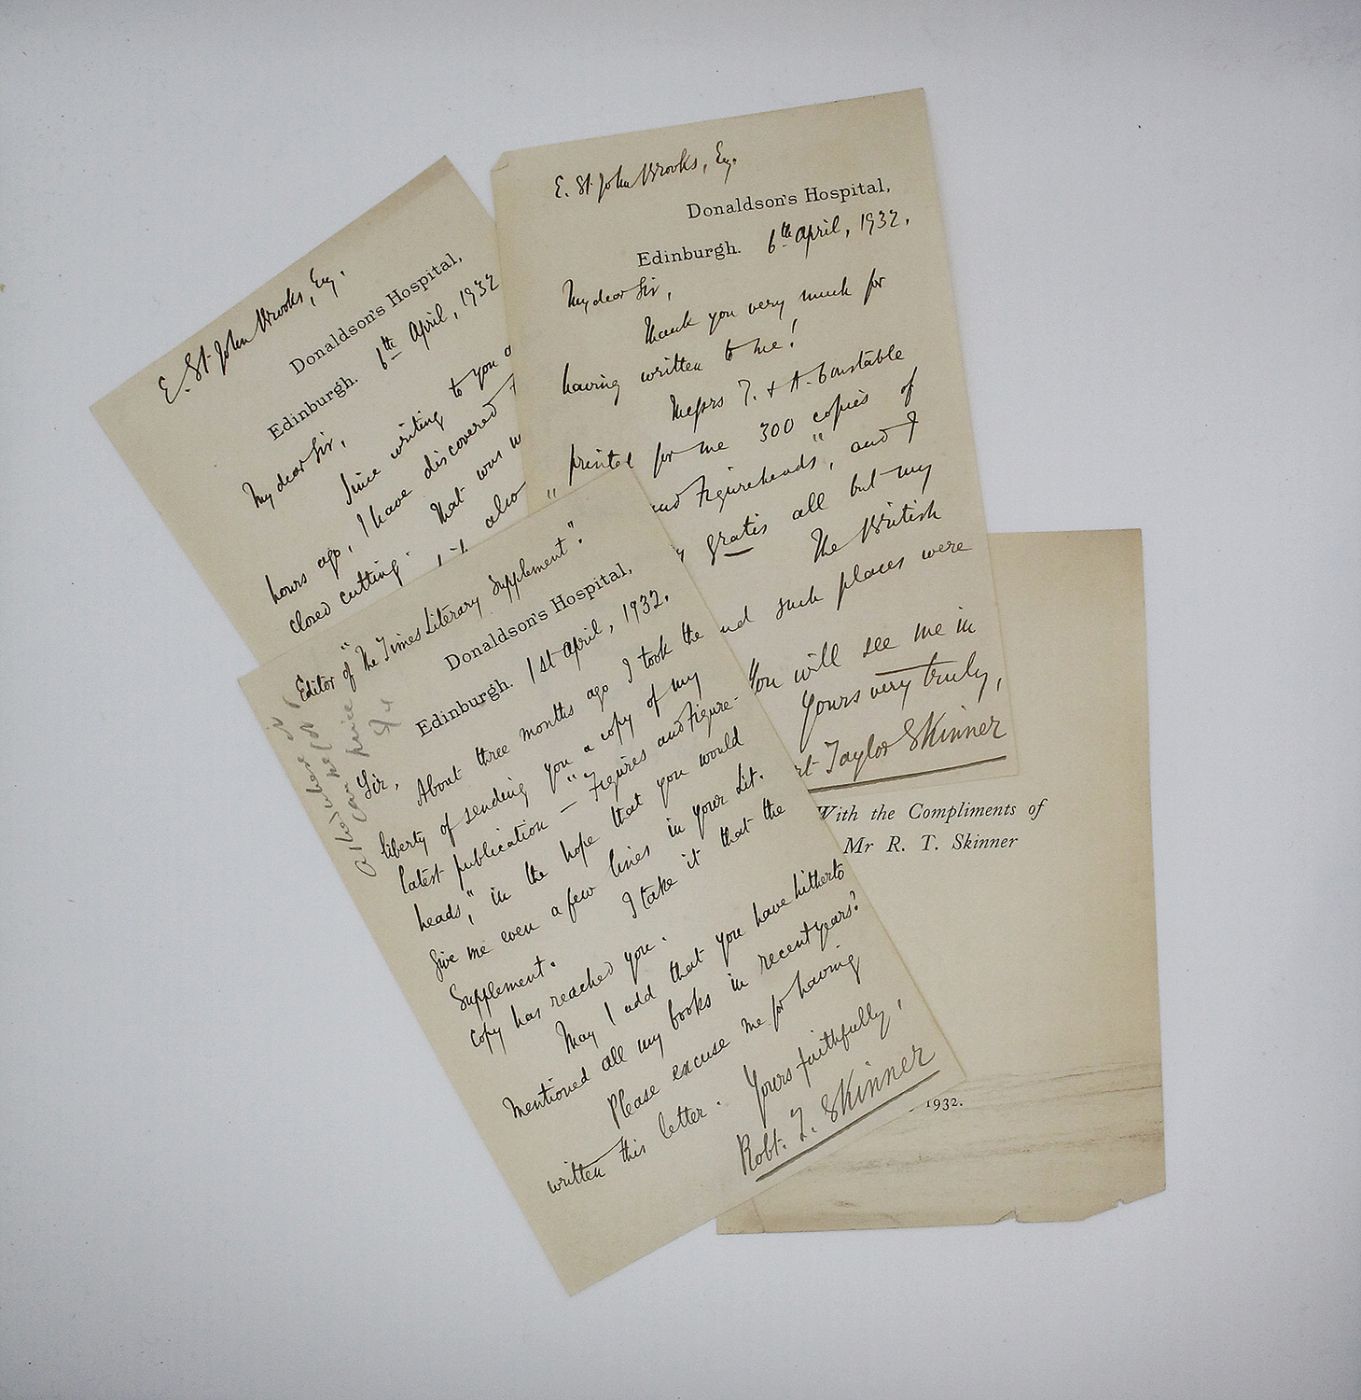 E. St. John Brooks, Esq.
Donaldson's Hospital,
Edinburgh. 6th April, 1932
My dear Sir,
Since writing to you
hours ago, I have discovered
that was
closed cutting. also
E. St. John Brooks, Esq.
Donaldson's Hospital,
Edinburgh. 6th April, 1932.
My dear Sir,
Thank you very much for
having written to me!
Messrs T. & A. Constable
printed for me 300 copies of
" and Figureheads", and I
gratis all but my
The British
nd such places were
You will see me in
Yours very truly,
rt Taylor Skinner
Editor of "The Times Literary Supplement".
Donaldson's Hospital,
Edinburgh. 1st April, 1932.
Sir,
About three months ago I took the
liberty of sending you a copy of my
latest publication — "Figures and Figure-
heads", in the hope that you would
give me even a few lines in your Lit.
Supplement. I take it that the
copy has reached you.
May I add that you have hitherto
mentioned all my books in recent years?
Please excuse me for having
written this letter. Yours faithfully,
Robt. T. Skinner
With the Compliments of
Mr R. T. Skinner
1932.